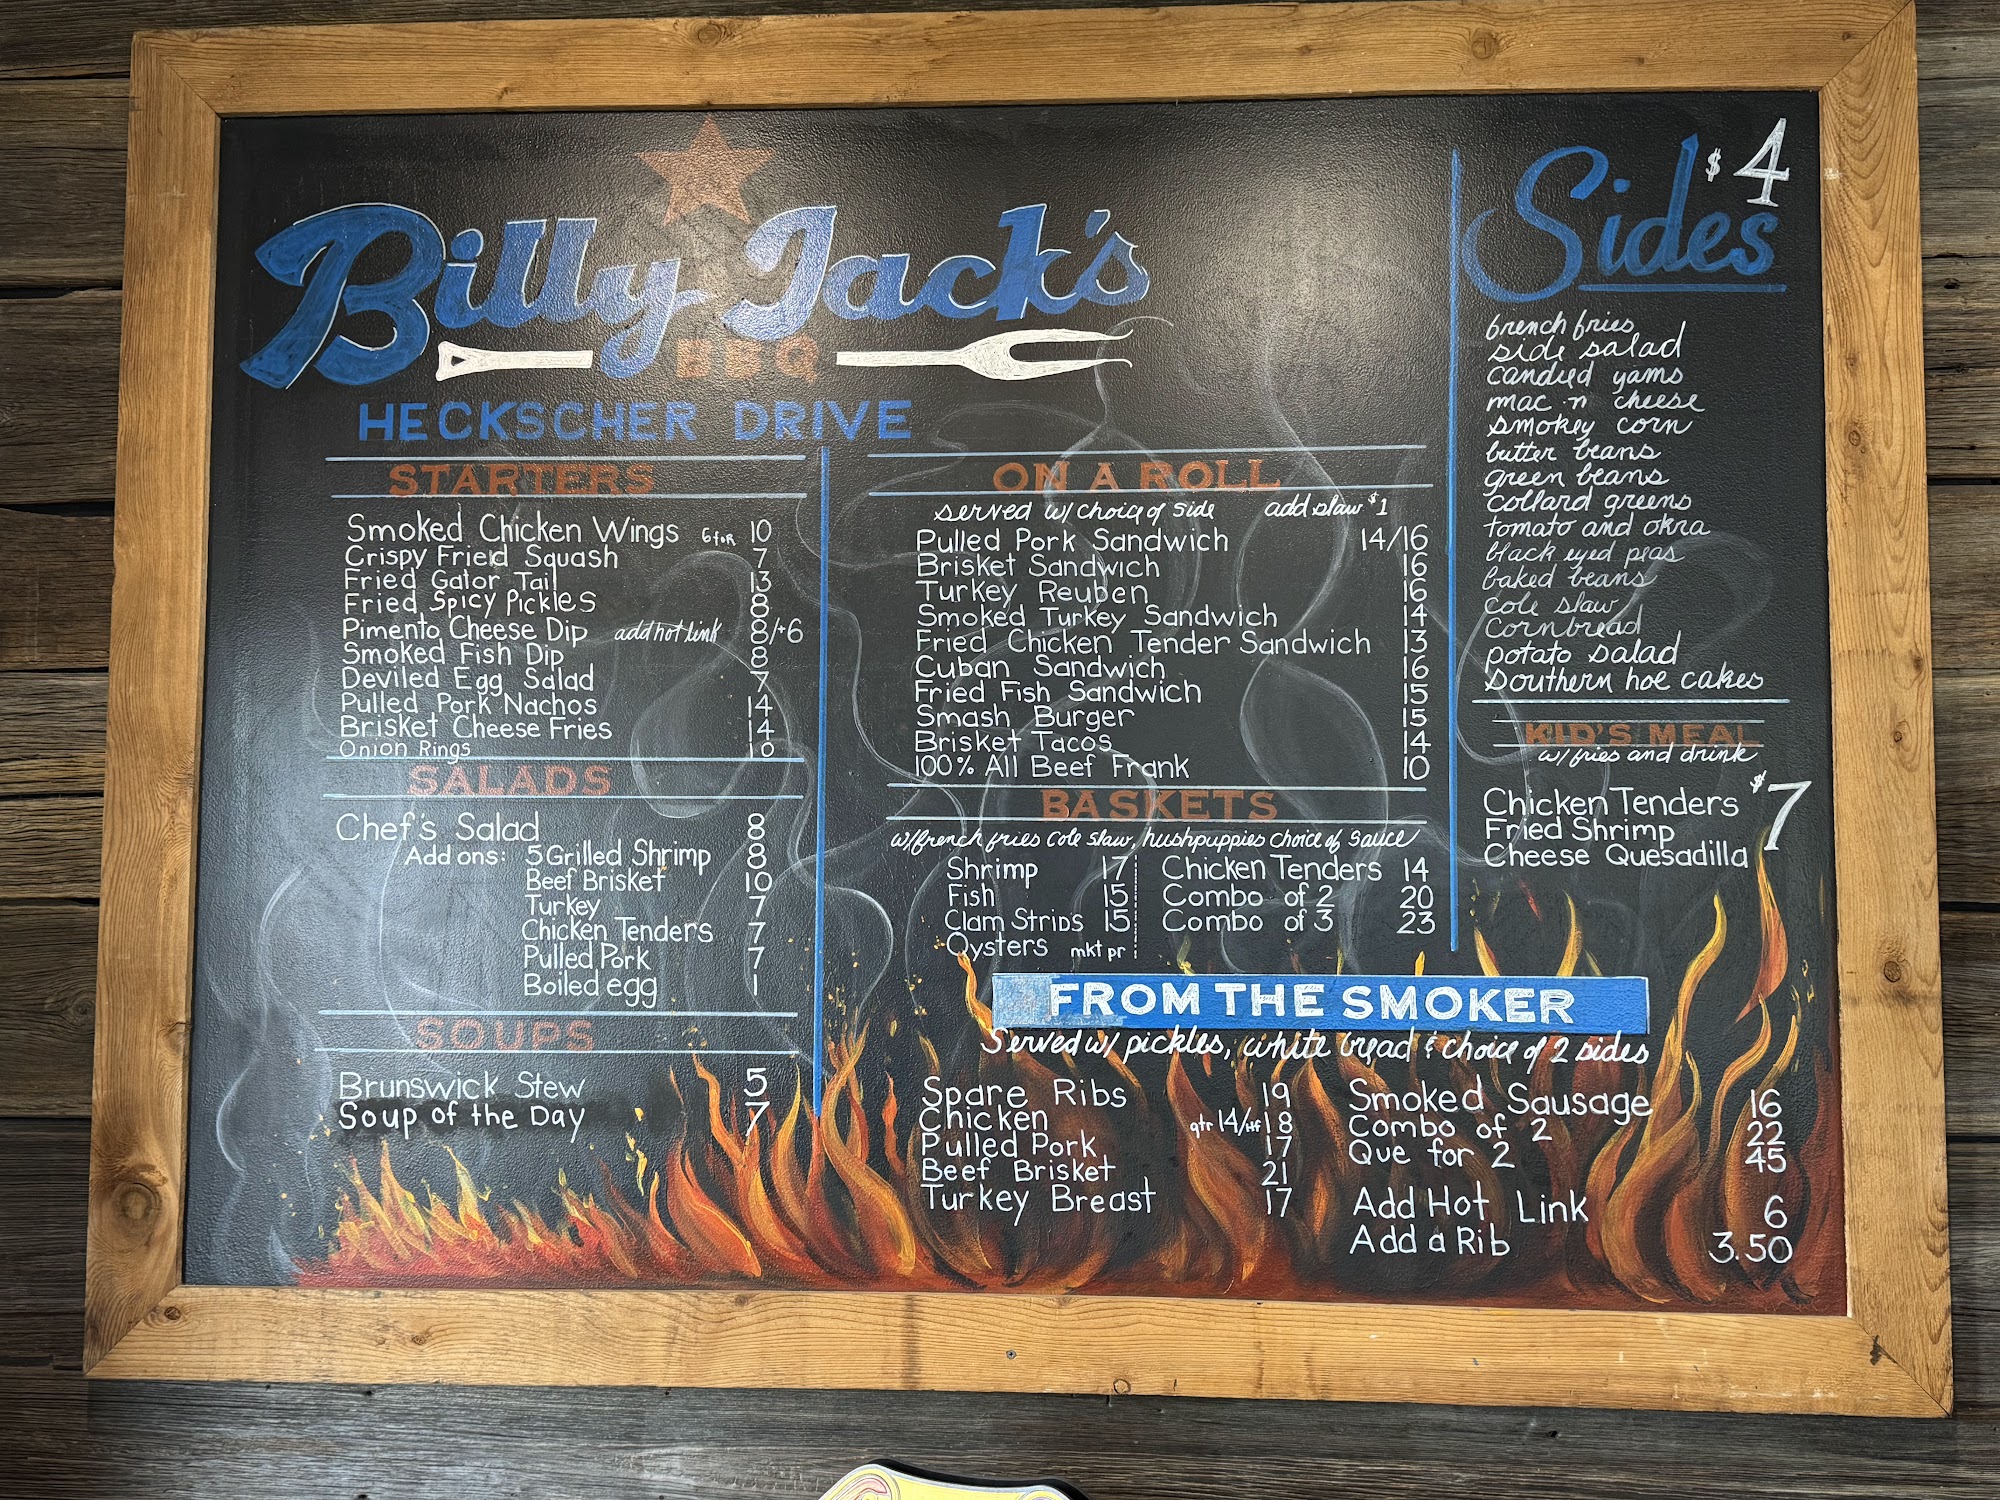 Billy Jack's
BBQ
HECKSCHER DRIVE
STARTERS
Smoked Chicken Wings 6 for 10
Crispy Fried Squash 7
Fried Gator Tail 13
Fried Spicy Pickles 8
Pimento Cheese Dip add hot link 8/+6
Smoked Fish Dip 8
Deviled Egg Salad 7
Pulled Pork Nachos 14
Brisket Cheese Fries 14
Onion Rings 10
SALADS
Chef's Salad 8
Add ons: 5 Grilled Shrimp 8
Beef Brisket 10
Turkey 7
Chicken Tenders 7
Pulled Pork 7
Boiled egg 1
SOUPS
Brunswick Stew 5
Soup of the Day 7
ON A ROLL
served w/ choice of side add slaw $1
Pulled Pork Sandwich 14/16
Brisket Sandwich 16
Turkey Reuben 16
Smoked Turkey Sandwich 14
Fried Chicken Tender Sandwich 13
Cuban Sandwich 16
Fried Fish Sandwich 15
Smash Burger 15
Brisket Tacos 14
100% All Beef Frank 10
BASKETS
w/french fries cole slaw, hushpuppies choice of sauce
Shrimp 17 Chicken Tenders 14
Fish 15 Combo of 2 20
Clam Strips 15 Combo of 3 23
Oysters mkt pr
FROM THE SMOKER
Served w/ pickles, white bread & choice of 2 sides
Spare Ribs 19
Chicken qtr 14/Hf 18
Pulled Pork 17
Beef Brisket 21
Turkey Breast 17
Smoked Sausage 16
Combo of 2 22
Que for 2 45
Add Hot Link 6
Add a Rib 3.50
Sides $4
french fries
side salad
candied yams
mac n cheese
smokey corn
butter beans
green beans
collard greens
tomato and okra
black eyed peas
baked beans
cole slaw
cornbread
potato salad
southern hoe cakes
KID'S MEAL
w/ fries and drink
$7
Chicken Tenders
Fried Shrimp
Cheese Quesadilla